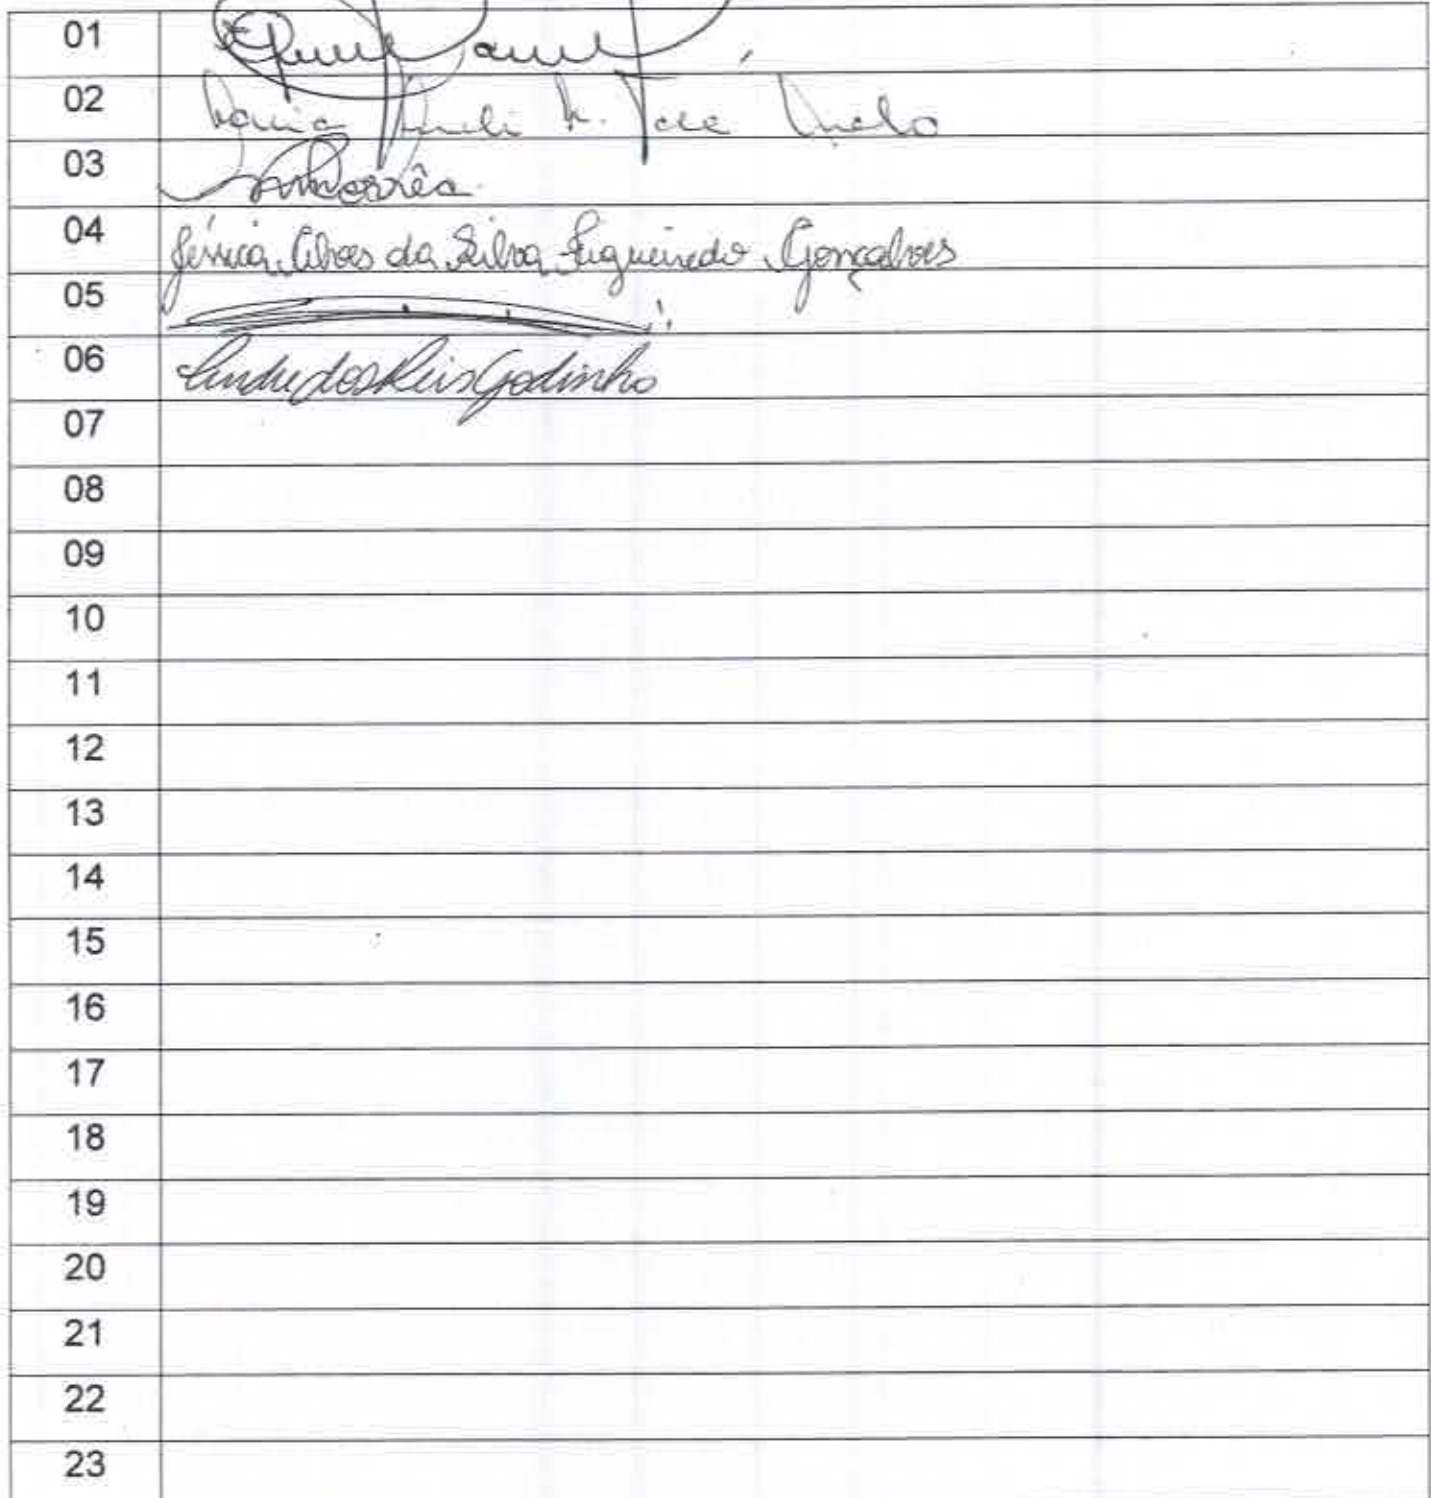 01
02 Maria
03
04 Jéssica Alves da Silva Figueiredo Gonçalves
05
06 Andre dos Reis Godinho
07
08
09
10
11
12
13
14
15
16
17
18
19
20
21
22
23